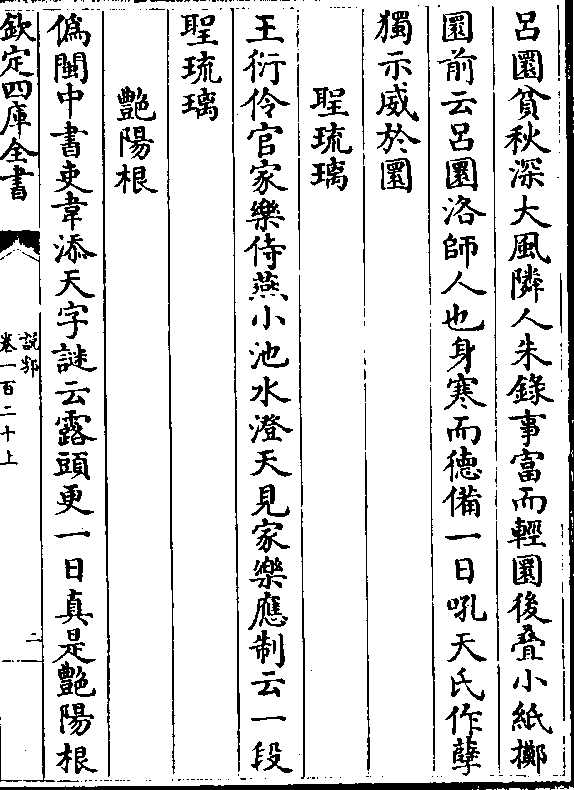 呂圜貧秋深大風隣人朱錄事富而輕圜後疊小紙擲
圜前云呂圜洛師人也身寒而徳備一日吼天氏作孽
獨示威於圜
聖琉璃
王衍伶官家樂侍燕小池水澄天見家樂應制云一段
聖琉璃
艷陽根
偽閩中書吏韋添天字謎云露頭更一日真是艷陽根
欽定四庫全書
說郛
卷一百二十上
二